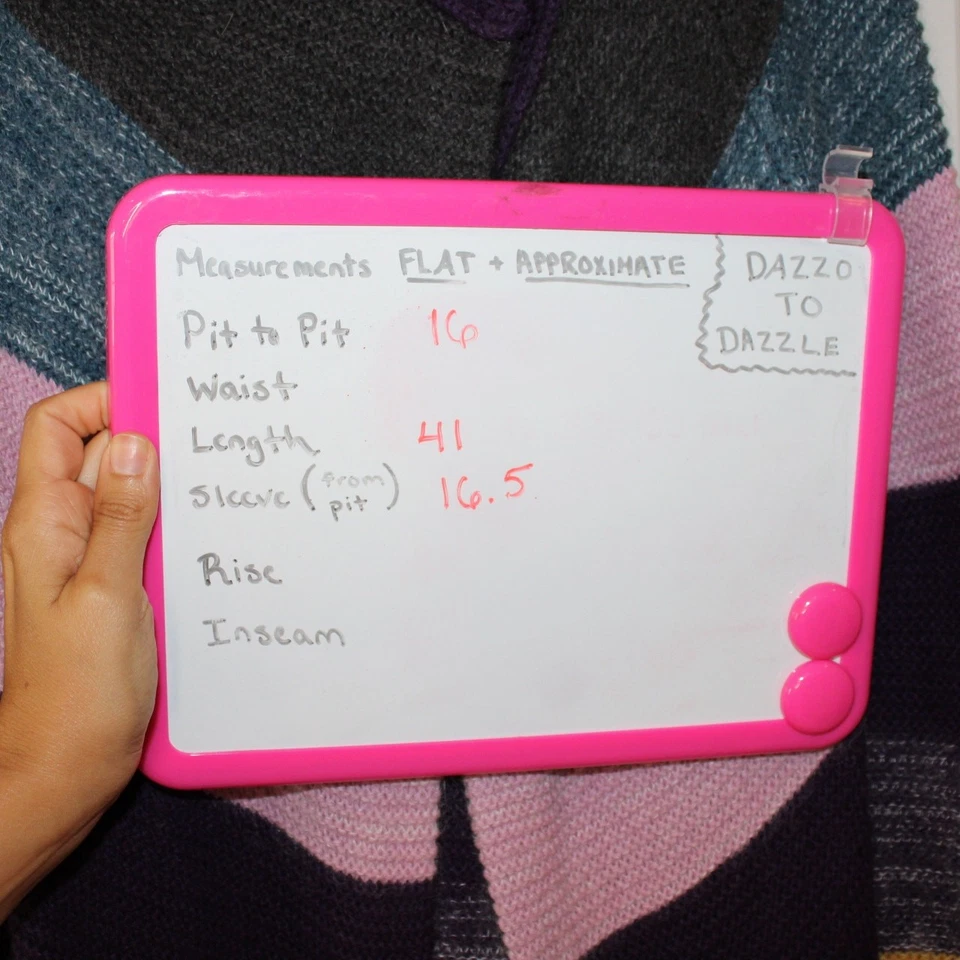 Measurements FLAT + APPROXIMATE
DAZZO
TO
DAZZLE
Pit to Pit 16
Waist
Length 41
Sleeve (from pit) 16.5
Rise
Inseam